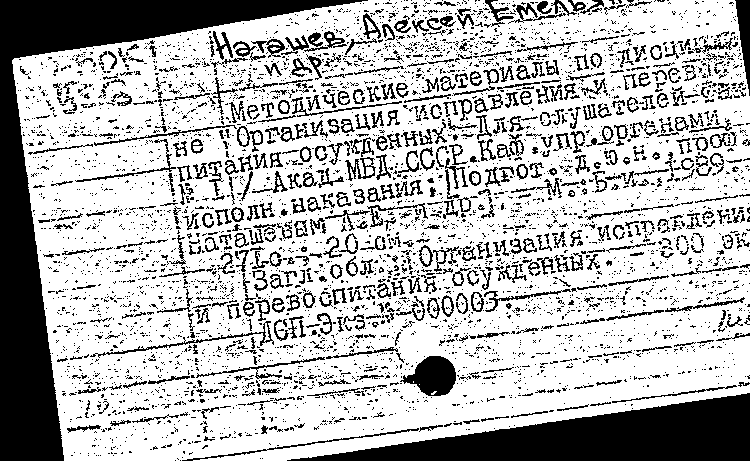 Наташев, Алексей Емельян
и др
Методические материалы по дисципли
не "Организация исправления и перевос
питания осужденных". Для слушателей
№ I / Акад.МВД СССР.Каф.упр.органами,
исполн.наказания; [Подгот. д.ю.н.,проф.
Наташевым А.Е. и др.]. - М.:Б.и.,1989.
27 с.; 20 см.
Загл.обл.: Организация исправления
и перевоспитания осужденных. - 300 эк
ДСП.Экз.№ 000003.